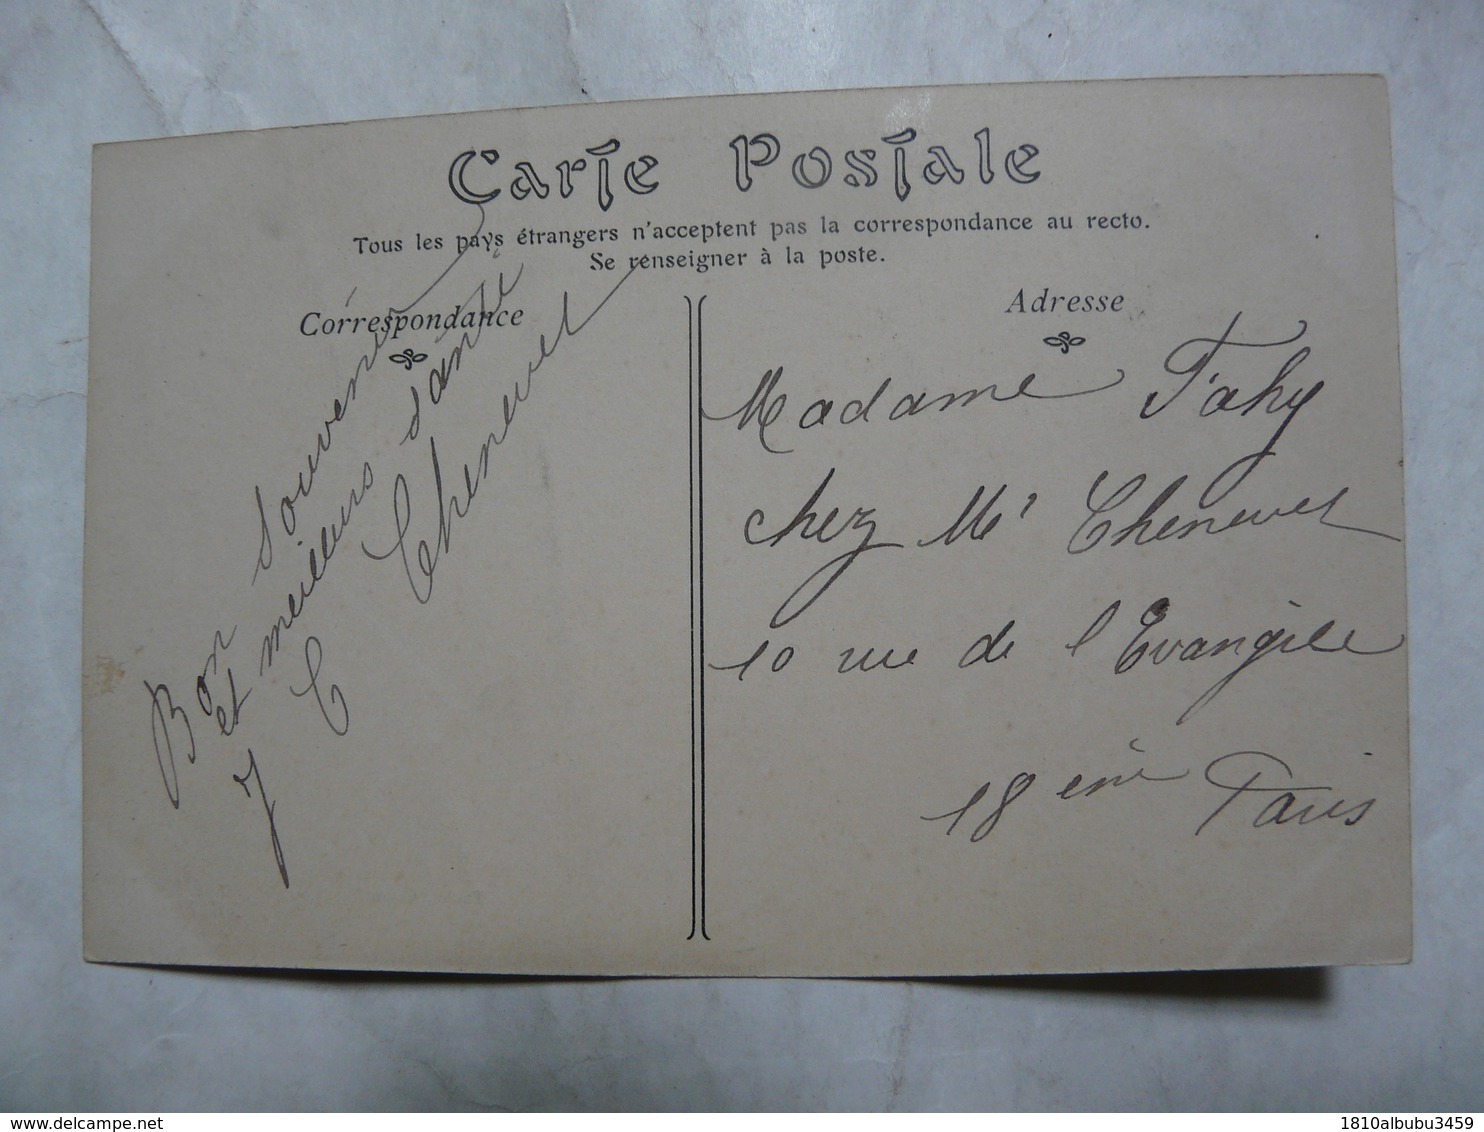 Carte Postale
Tous les pays étrangers n'acceptent pas la correspondance au recto.
Se renseigner à la poste.
Correspondance
Bon Souvenir
et meilleurs
C Chenevet
Adresse
Madame Fahy
chez Mr Chenevet
10 rue de l'Evangile
18 ème Paris
www.delcampe.net
1810albubu3459